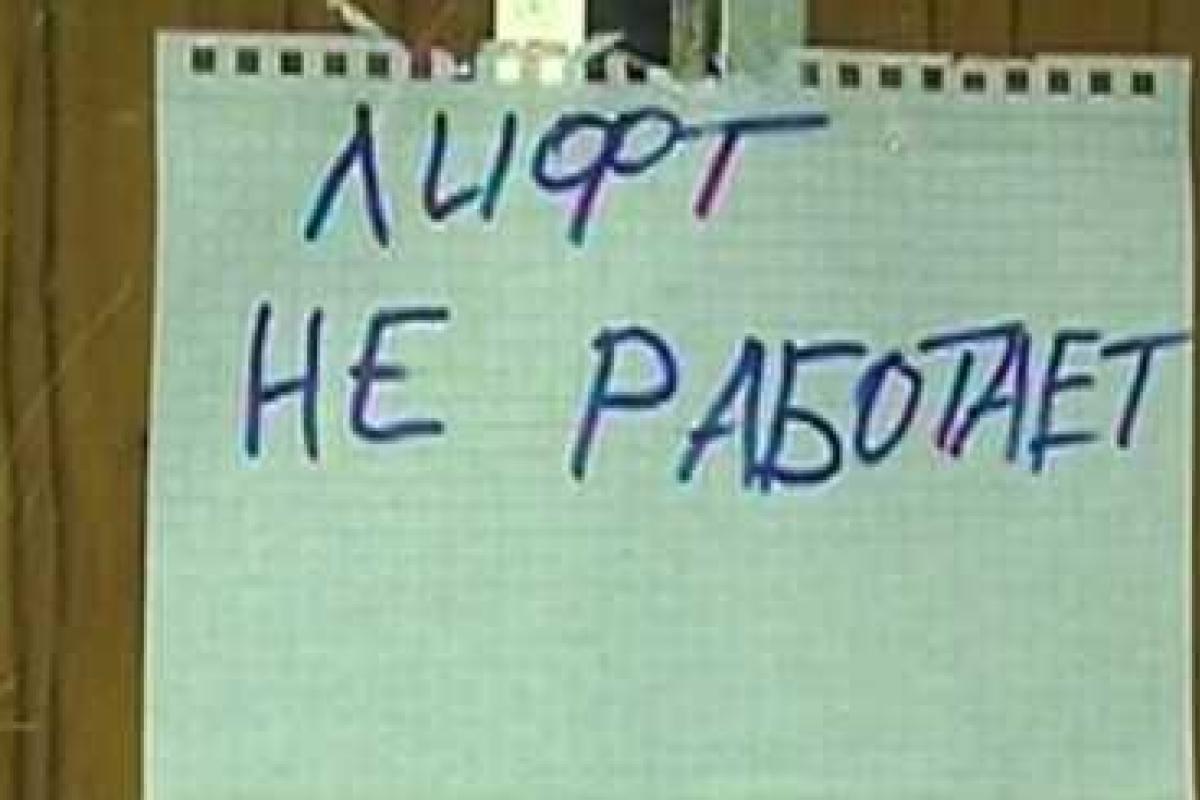 ЛИФТ
НЕ РАБОТАЕТ